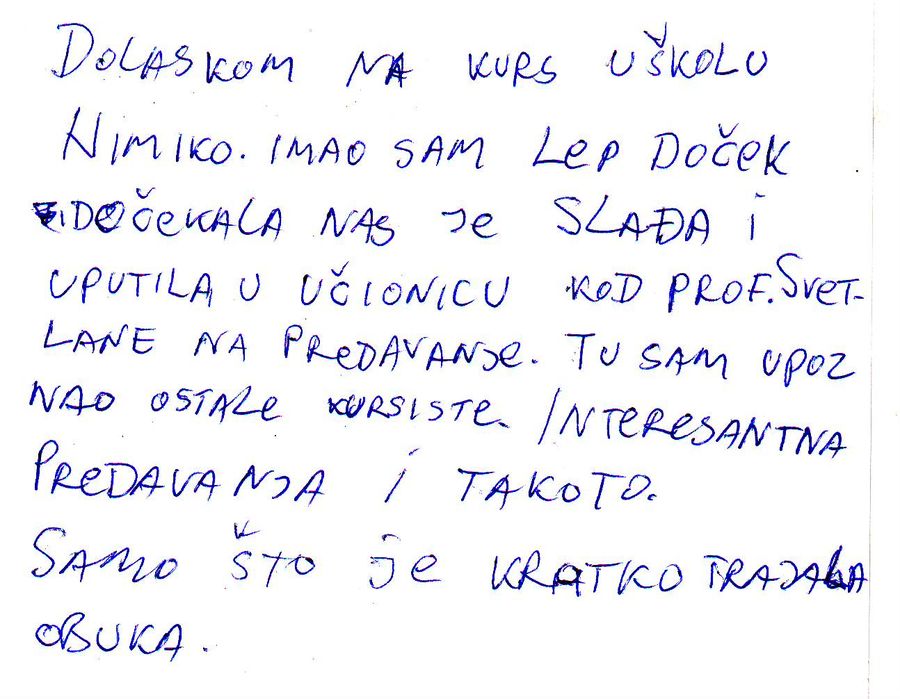 DOLASKOM NA KURS UŠKOLU
NIMIKO. IMAO SAM LEP DOČEK
DOČEKALA NAS JE SLAĐA I
UPUTILA U UČIONICU KOD PROF. SVET-
LANE NA PREDAVANJE. TU SAM UPOZ
NAO OSTALE KURSISTE. INTERESANTNA
PREDAVANJA I TAKOTO.
SAMO ŠTO JE KRATKO TRAJALA
OBUKA.